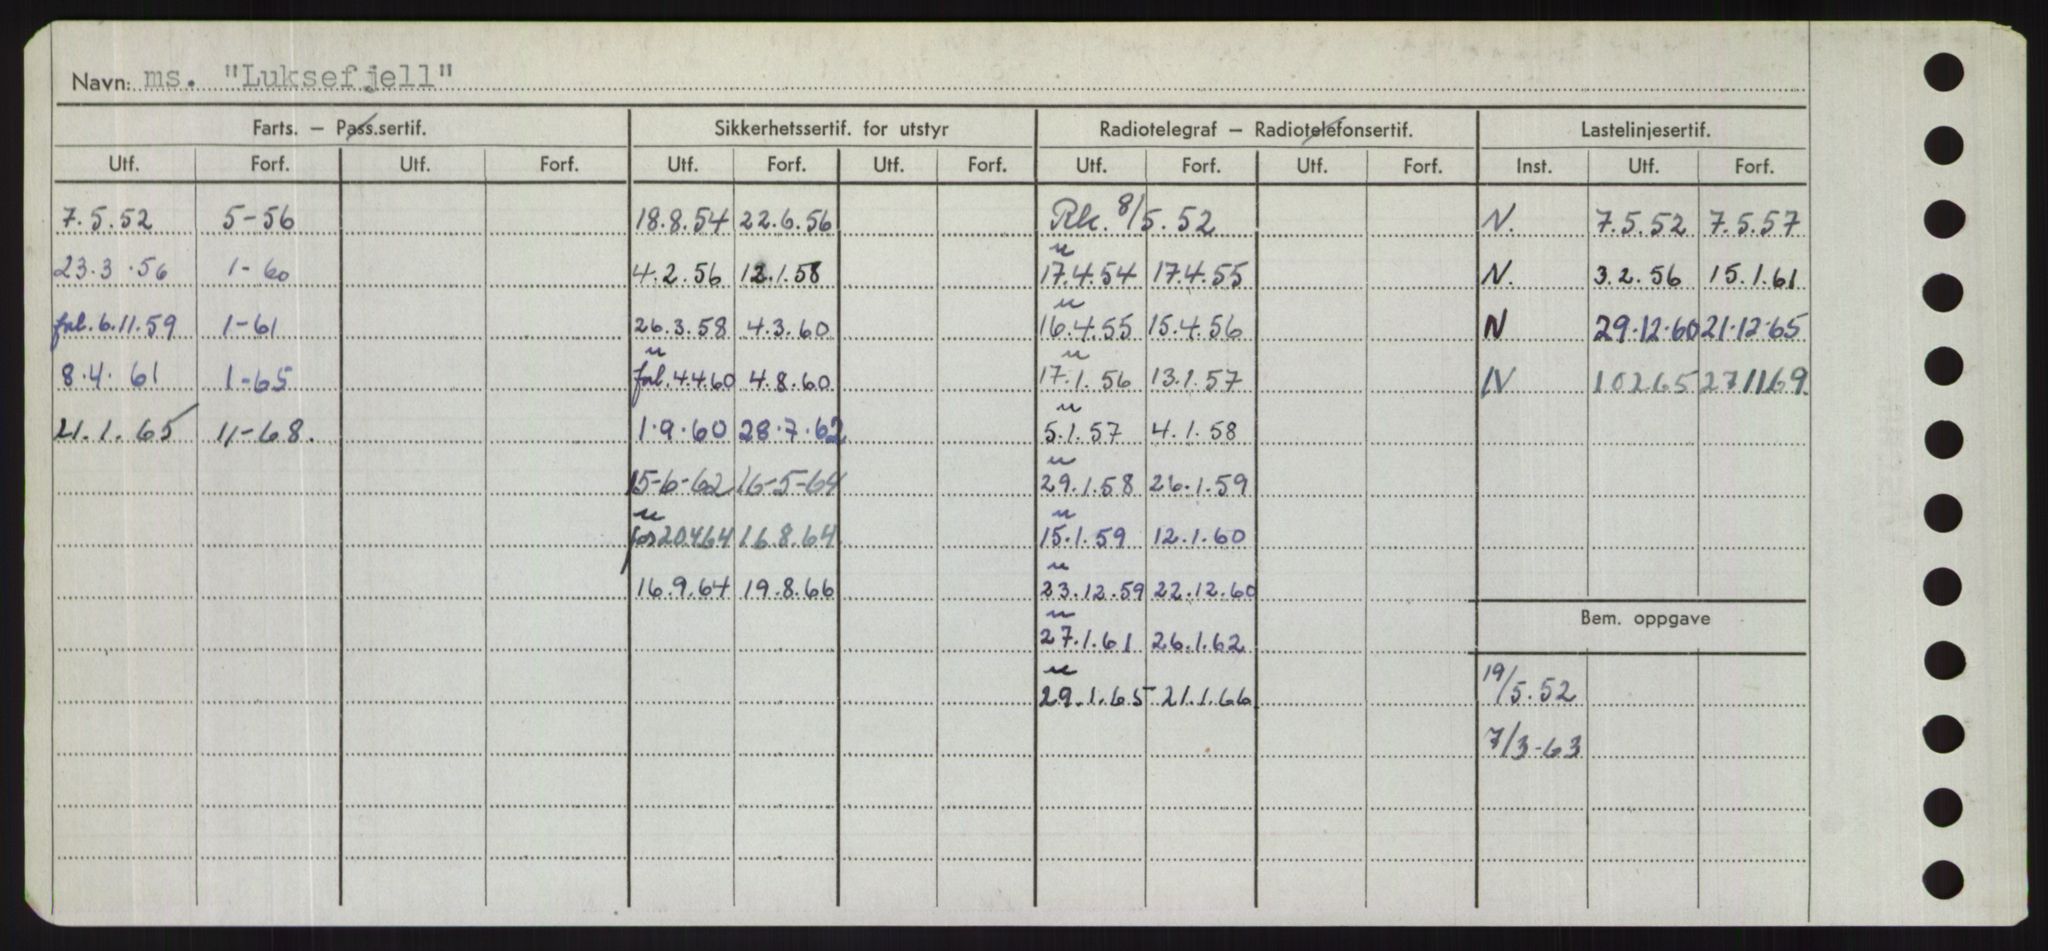 Navn: ms. "Luksefjell"
Farts. – Pass.sertif. Sikkerhetssertif. for utstyr Radiotelegraf – Radiotelefonsertif. Lastelinjesertif.
Utf. Forf. Utf. Forf. Utf. Forf. Utf. Forf. Utf. Forf. Utf. Forf. Inst. Utf. Forf.
7.5.52 5-56 18.8.54 22.6.56 Rk. 8/5.52 N. 7.5.52 7.5.57
u
23.3.56 1-60 4.2.56 12.1.58 17.4.54 17.4.55 N. 3.2.56 15.1.61
u
forl. 6.11.59 1-61 26.3.58 4.3.60 16.4.55 15.4.56 N 29.12.60 21.12.65
u u
8.4.61 1-65 forl. 4.4.60 4.8.60 17.1.56 13.1.57 N 10265 271169
u
21.1.65 11-68. 1.9.60 28.7.62 5.1.57 4.1.58
u
15-6-62 16-5-64 29.1.58 26.1.59
u u
for 20464 16.8.64 15.1.59 12.1.60
u
16.9.64 19.8.66 23.12.59 22.12.60
Bem. oppgave
u
27.1.61 26.1.62
u
29.1.65 21.1.66 19/5.52
7/3-63